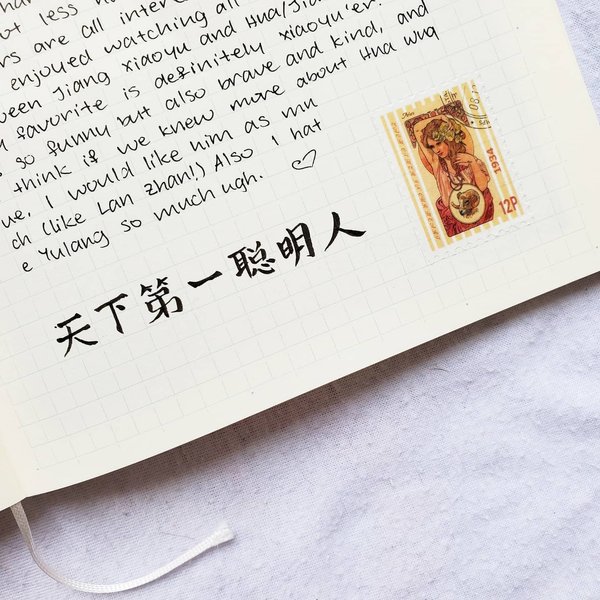 but less h
rs are all inter
enjoyed watching all
ween Jiang Xiaoyu and Hua/Jia
favorite is definitely xiaoyu'er.
so funny but also brave and kind, and
think if we knew more about Hua Wuq
ue, I would like him as mu
ch (like Lan Zhan!) Also I hat
e Yulang so much ugh. ♡
天下第一聪明人
1934
12P